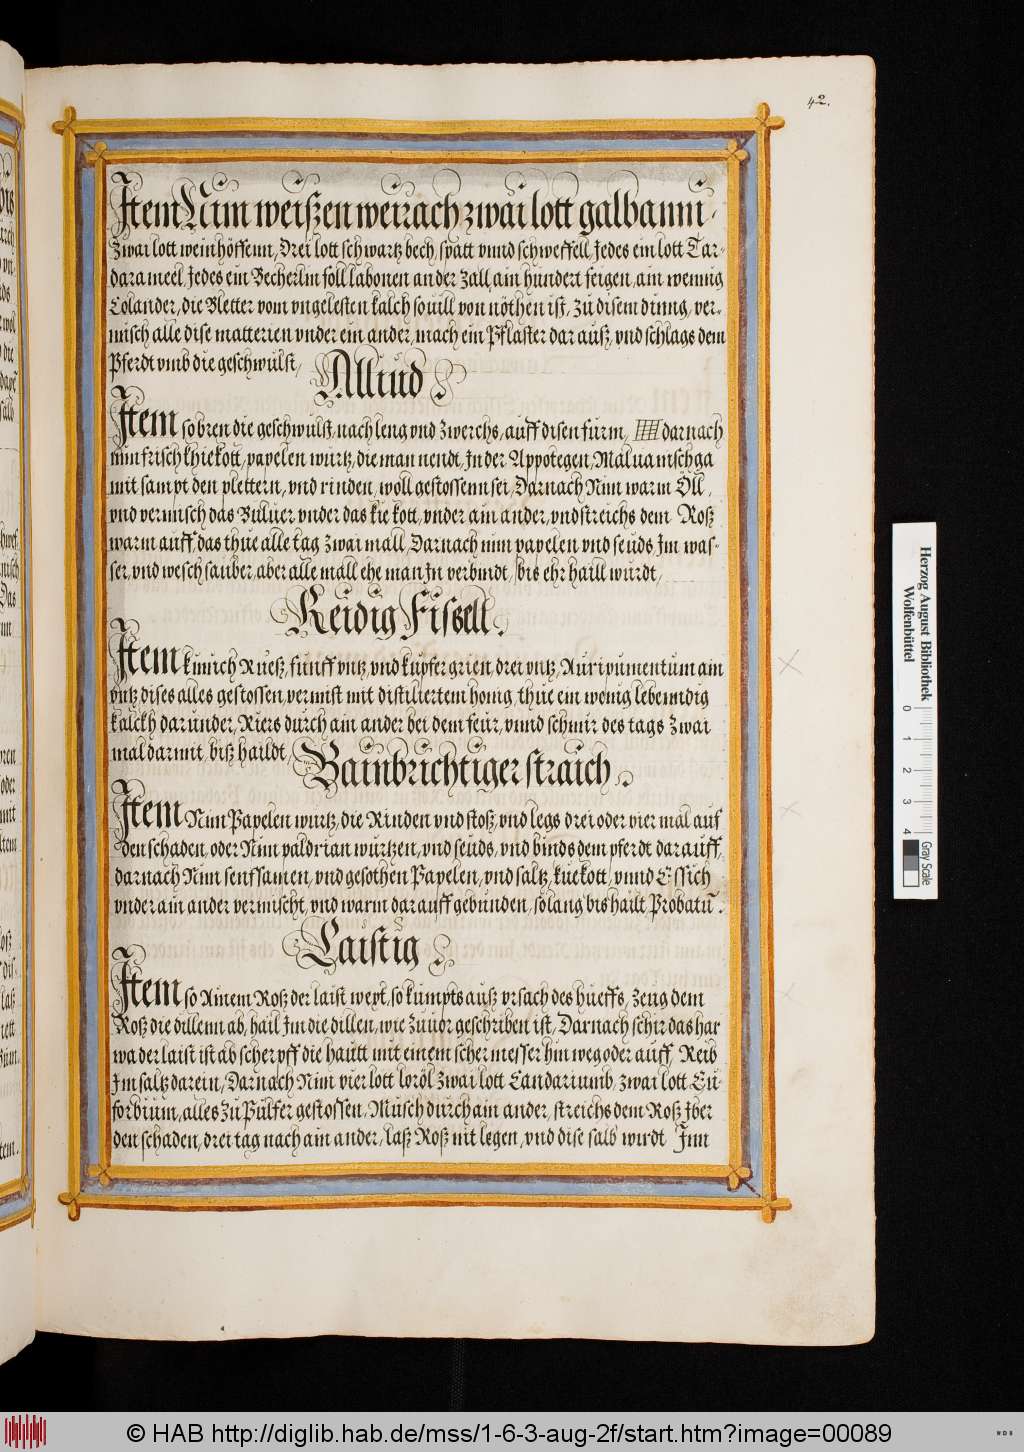 42.
Item Nim weißen weirach zwai lott galbanni,
Zwai lott wein höffenn, Drei lott schwartz bech, spatt vnnd schweffell, Jedes ein lott Tar-
dara meel, Jedes ein Becherlin foll, labonen an der Zall, ain hundert feigen, ain wennig
Colander, die Bletter vom vngelesten kalch souill von nöthen ist, Zu disem dinng, ver-
misch alle dise matterien vnder ein ander, mach ein Pflaster dar auß, vnd schlags dem
Pferdt vmb die geschwulst,
Alliud
Item so bren die geschwulst, nach leng vnd Zwerchs, auff disen furm, darnach
nim frisch khiekott, papelen wurtz, die man nendt, In der Appotegen, Maluamschga
mit sampt den plettern, vnd rinden, woll gestossenn sei, Darnach Nim warm Öll,
vnd vermisch das Buluer vnder das kie kott, vnder ain ander, vnd streichs dem Roß
warm auff, das thue alle tag zwai mall, Darnach nim papelen vnd seuds Im was-
ser, vnd wesch sauber, aber alle mall ehe man In verbindt, bis ehr haill wurdt,
Reidig Fisell.
Item kinich Rueß, funff vntz, vnd kupfer grien, drei vntz, Auripumentum ain
vntz, dises alles gestossen, vermist mit distiliertem honig, thue ein wenig lebenndig
kalckh darunder, Riers durch ain ander bei dem feur, vnnd schmir des tags Zwai
mal darmit, biß haildt,
Bainbrichtiger straich.
Item Nim Papelen wurtz, die Rinden vnd stoß, vnd legs drei oder vier mal auf
den schaden, oder Nim paldrian wurtzen, vnd seuds, vnd binds dem pferdt darauff,
darnach Nim senffsamen, vnd gesothen Papelen, vnd saltz, kuekott, vnnd Essich
vnder ain ander vermischt, vnd warm darauff gebunden, so lang bis hailt, Probatu.
Laistig
Item so Ainem Roß der laist weyt, so kumpts auß vrsach des hueffs, Zeug dem
Roß die dillenn ab, hail Im die dillen, wie Zuuor geschriben ist, Darnach schir das har
wa der laist ist ab scher vff die hautt mit einem scher messer hinweg oder auff, Reib
Im saltz darein, Darnach Nim vier lott loröl Zwai lott Candariumb, zwai lott Eu-
forbium, alles Zu Pulfer gestossen, Misch durch ain ander, streichs dem Roß Iber
den schaden, drei tag nach ain ander, laß Roß nit legen, vnd dise salb wirdt Inn
Herzog August Bibliothek
Wolfenbüttel
0 1 2 3 4
Gray Scale
© HAB http://diglib.hab.de/mss/1-6-3-aug-2f/start.htm?image=00089